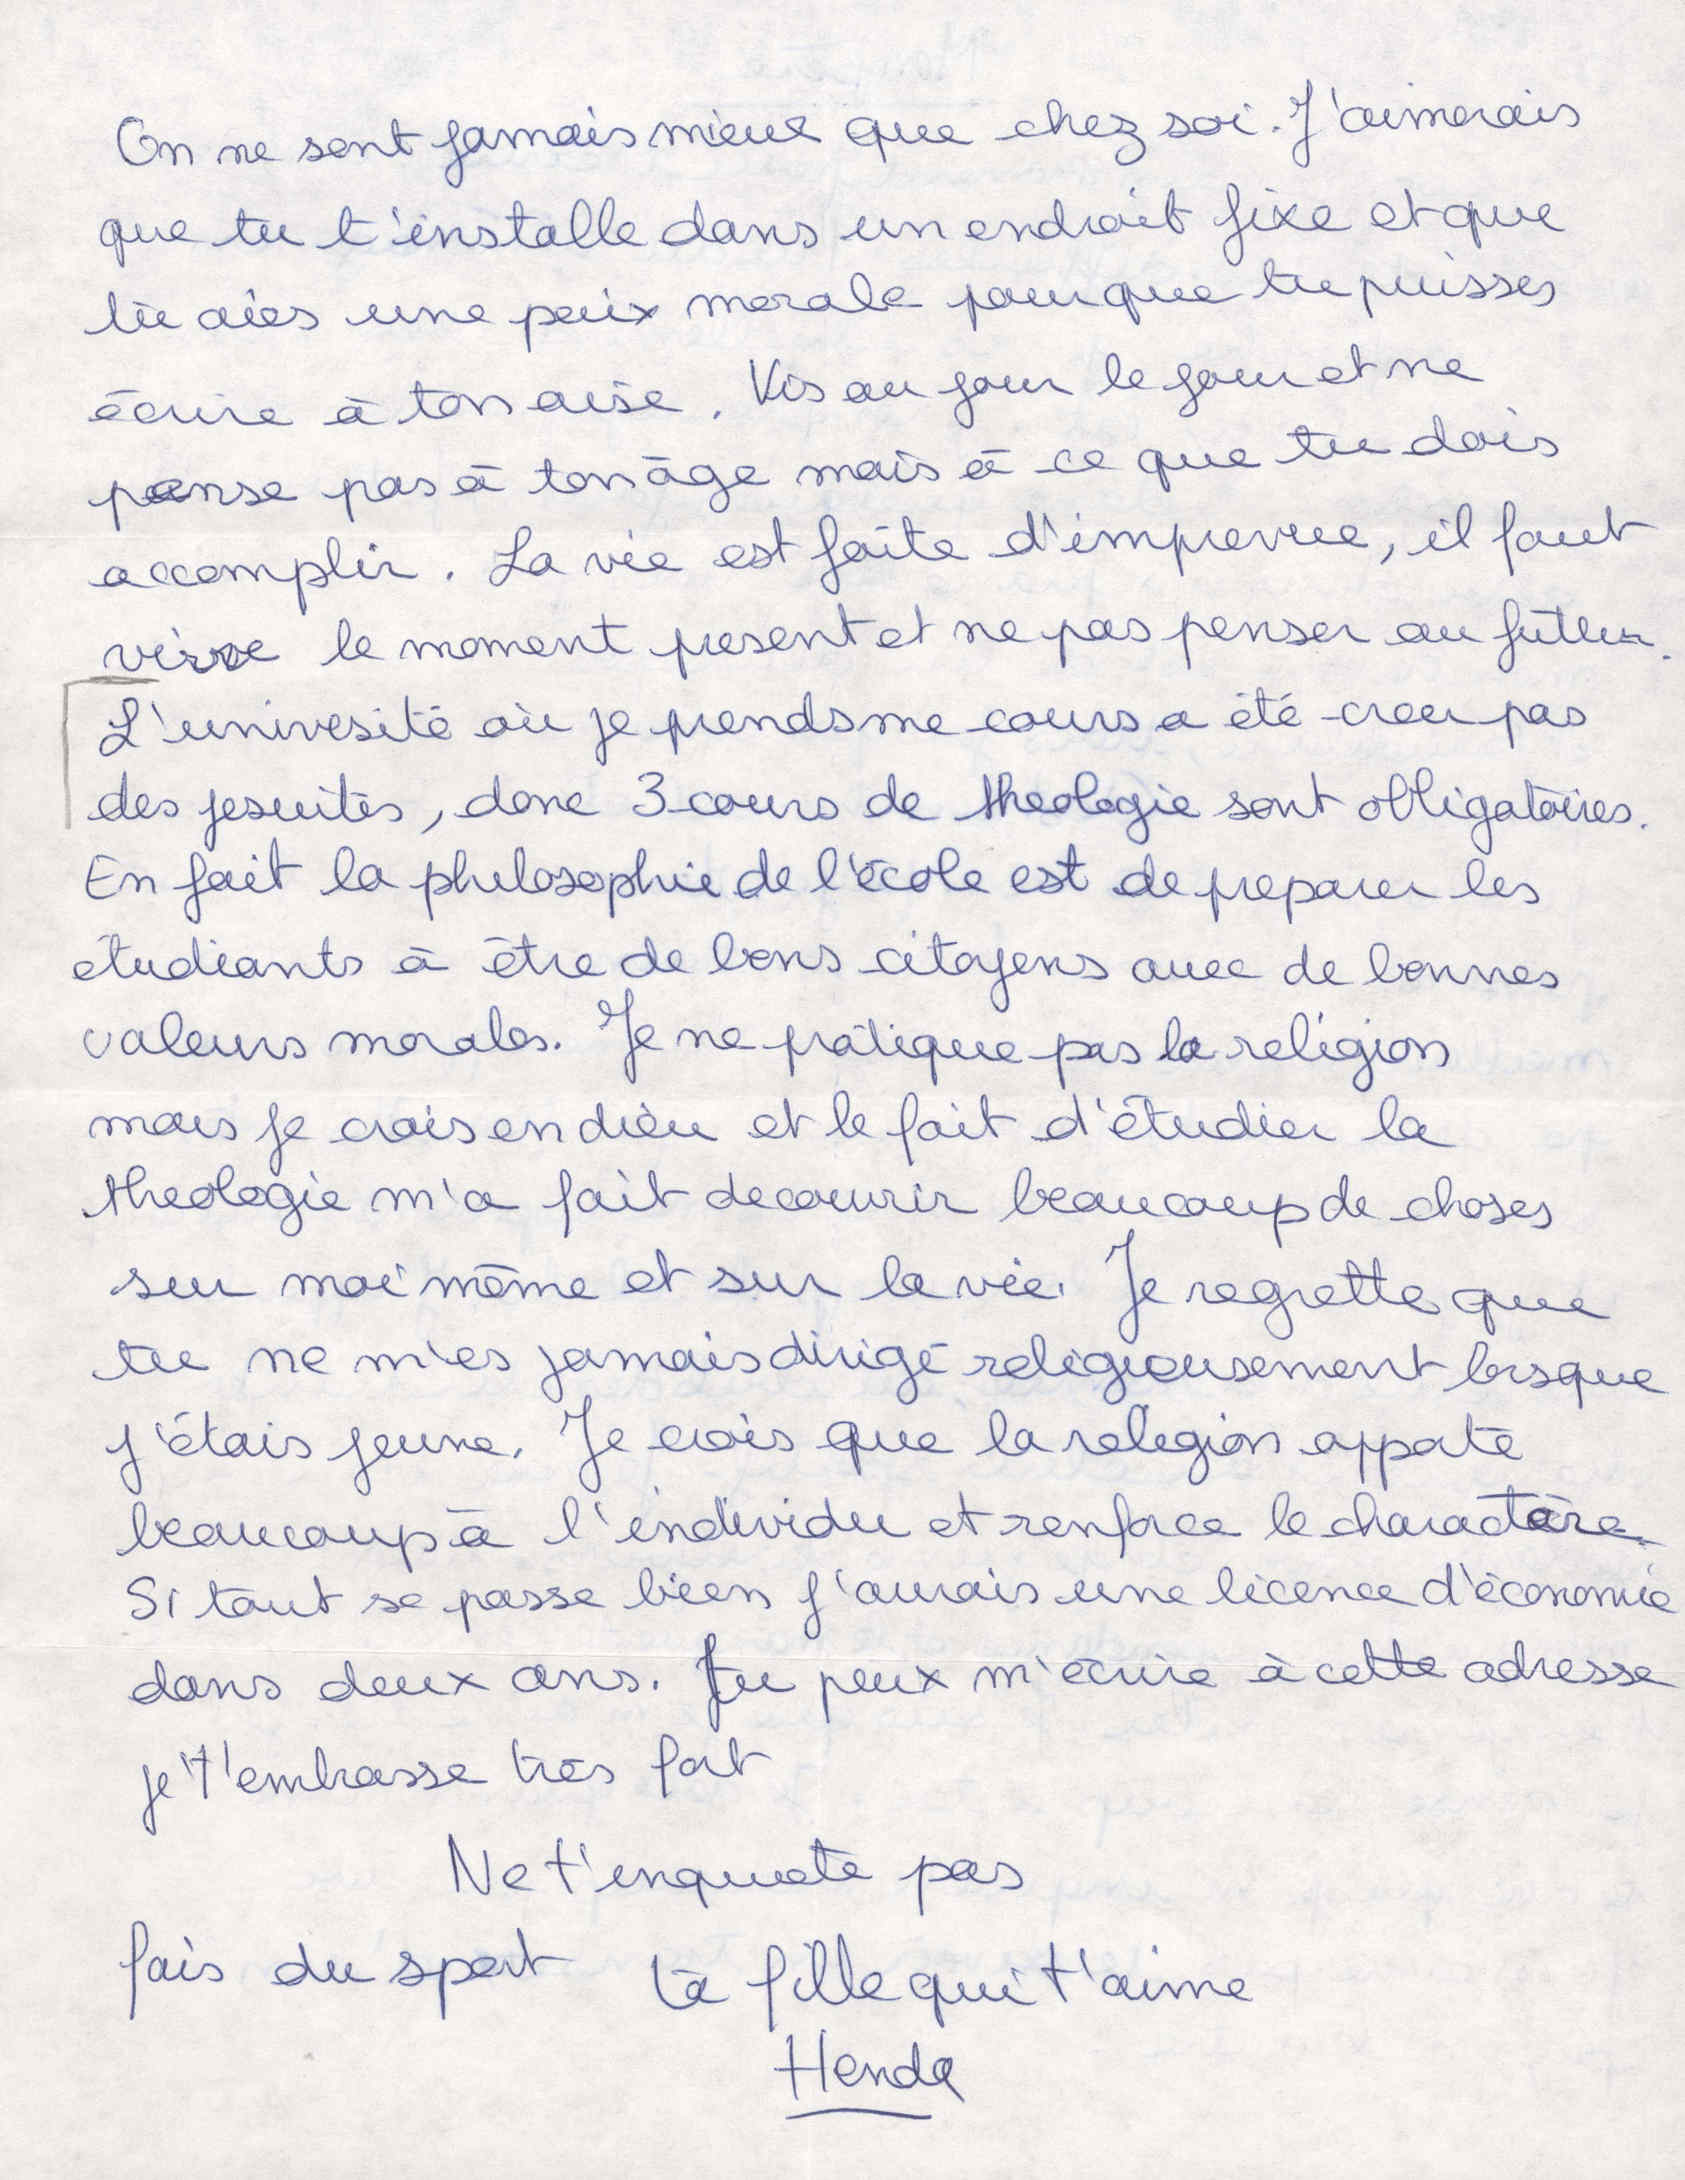 On ne sent jamais mieux que chez soi. J'aimerais
que tu t'installe dans un endroit fixe et que
tu aies une paix morale pour que tu puisses
écrire à ton aise. Vis au jour le jour et ne
panse pas à ton âge mais à ce que tu dois
accomplir. La vie est faite d'imprevue, il faut
vivre le moment present et ne pas penser au futur.
L'univesité où je prends me cours a été creer pas
des jesuites, donc 3 cours de theologie sont obligatoires.
En fait la philosophie de l'école est de preparer les
étudiants à être de bons citoyens avec de bonnes
valeurs morales. Je ne pratique pas la religion
mais je crois en dieu et le fait d'étudier la
theologie m'a fait decouvrir beaucoup de choses
sur moi même et sur la vie. Je regrette que
tu ne m'es jamais dirigé religieusement lorsque
j'étais jeune. Je crois que la religion apporte
beaucoup à l'individu et renforce le charactère.
Si tout se passe bien j'aurais une licence d'économie
dans deux ans. Tu peux m'écrire à cette adresse
je t'embrasse très fort
Ne t'enquete pas
fais du sport ta fille qui t'aime
Henda